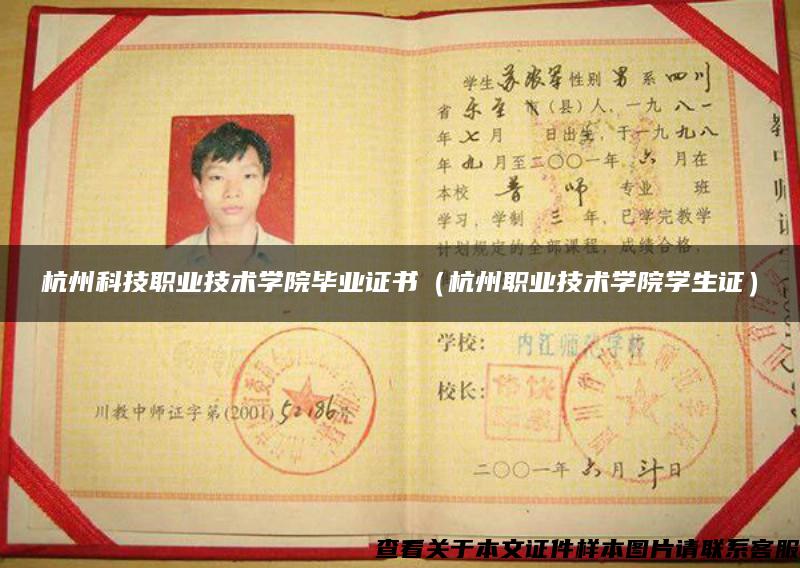 学生苏 性别男系四川
省乐至市(县)人,一九八一
年七月 日出生,于一九九八
年九月至二〇〇一年六月在
本校 普师 专业 班
学习,学制三年,已学完教学
计划规定的全部课程,成绩合格,
杭州科技职业技术学院毕业证书(杭州职业技术学院学生证)
学校: 内江师范学校
校长:
川教中师证字第(2001)52186号
二〇〇一年六月 日
查看关于本文证件样本图片请联系客服